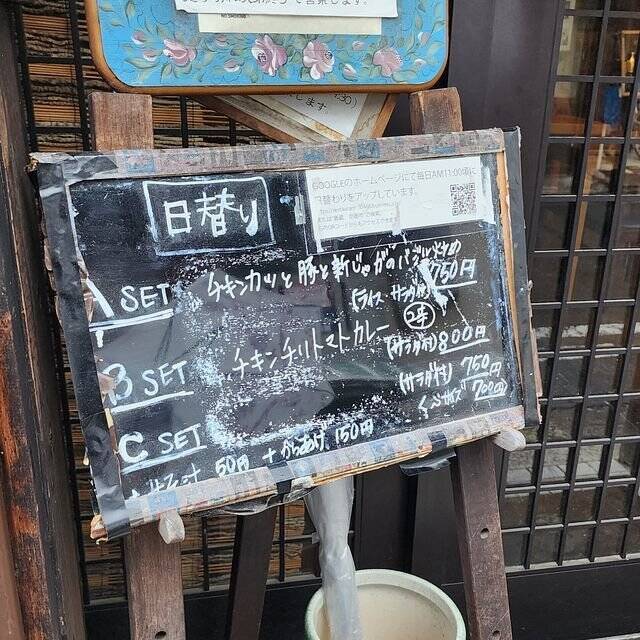 て営業します。
します。
GOOGLEのホームページにて毎日AM11:00頃に
日替わりをアップしています。
日替り
A SET
チキンカツと豚と新じゃがのバジル炒め
750円
(ライス サラダ付)
B SET
チキンチリトマトカレー
(サラダ付) 800円
C SET
(サラダ付) 750円
700円
50円 + からあげ 150円